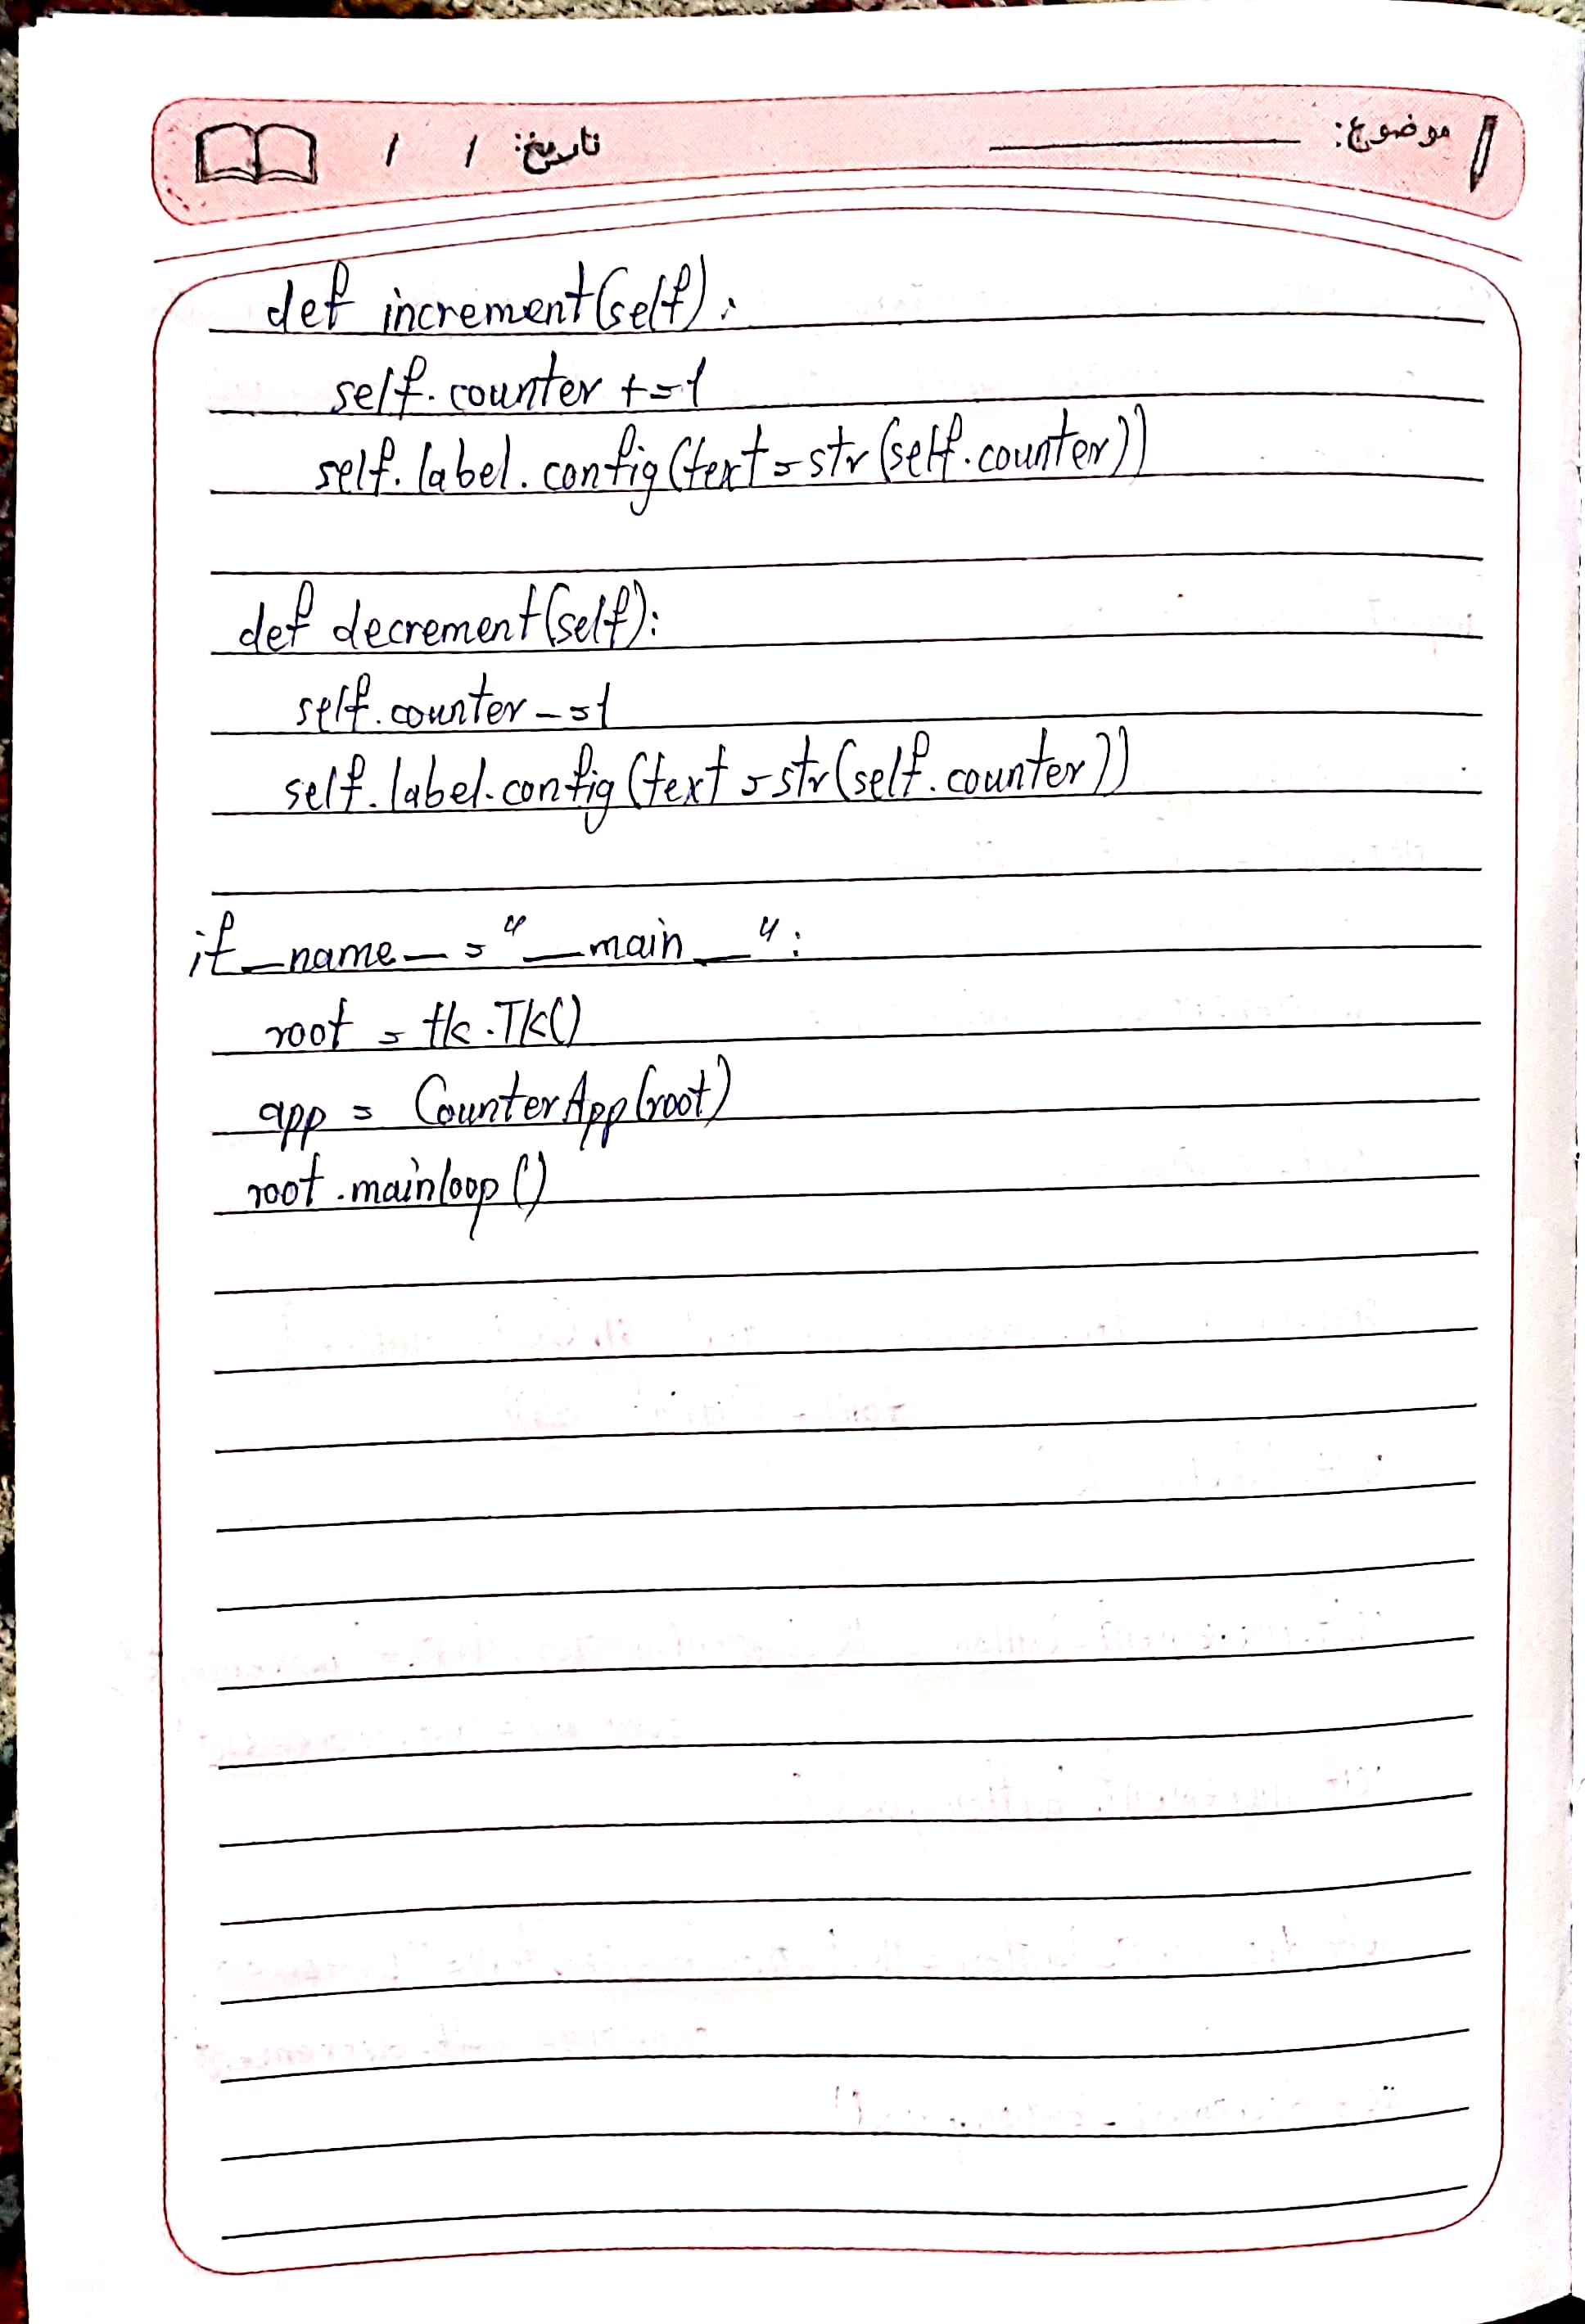 موضوع: تاریخ: / /
def increment(self):
self.counter +=1
self.label.config(text=str(self.counter))
def decrement(self):
self.counter -=1
self.label.config(text=str(self.counter))
if __name__ = "__main__":
root = tk.Tk()
app = CounterApp(root)
root.mainloop()